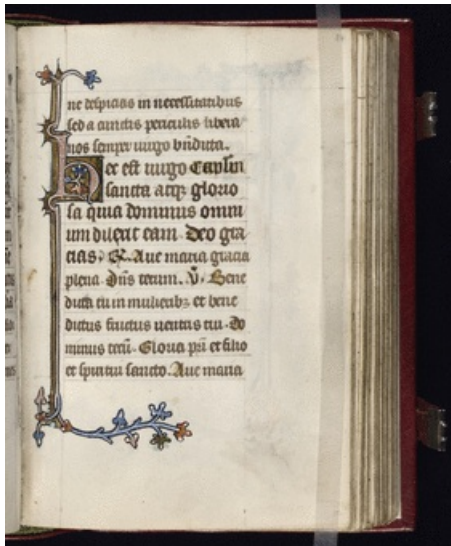 ne despicias in necessitatibus
sed a cunctis periculis libera
nos semper uirgo bñdicta.
Hec est uirgo Capłm
sancta atqꝫ glorio
sa quia dominus omni
um dilexit eam. Deo gra
cias. R̃. Aue maria gracia
plena. Dñs tecum. ℣. Bene
dicta tu in mulieribꝫ et bene
dictus fructus uentris tui. Do
minus tecũ. Gloria pr̃i et filio
et spiritui sancto. Aue maria